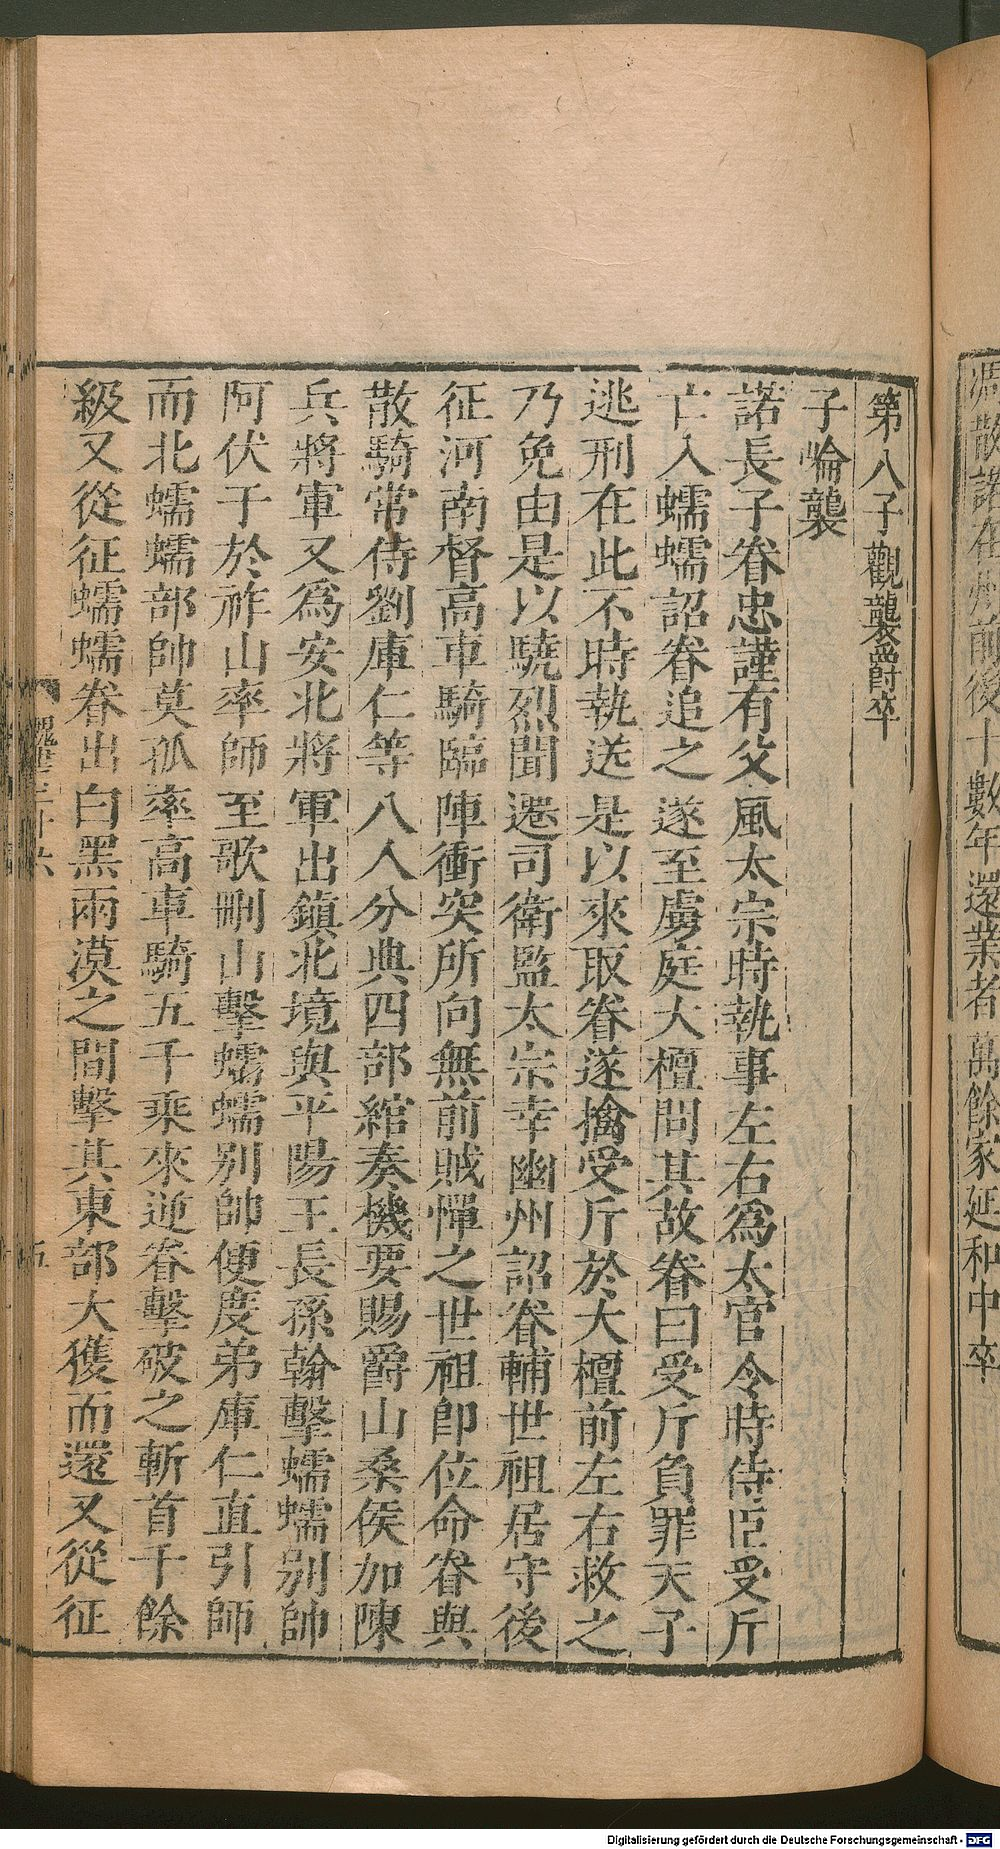 凋散諾在州前後十數年還業者萬餘家延和中卒
第八子觀襲爵卒
子崘襲
諾長子眷忠謹有父風太宗時執事左右爲太官令時侍臣受斤
亡入蠕蠕詔眷追之遂至虜庭大檀問其故眷曰受斤負罪天子
逃刑在此不時執送是以來取眷遂擒受斤於大檀前左右救之
乃免由是以驍烈聞遷司衛監太宗幸幽州詔眷輔世祖居守後
征河南督高車騎臨陣衝突所向無前賊憚之世祖即位命眷與
散騎常侍劉庫仁等八人分典四部綰奏機要賜爵山桑侯加陳
兵將軍又爲安北將軍出鎮北境與平陽王長孫翰擊蠕蠕別帥
阿伏干於祚山率師至歌刪山擊蠕蠕別帥便度弟庫仁直引師
而北蠕蠕部帥莫孤率高車騎五千乘來逆眷擊破之斬首千餘
級又從征蠕蠕眷出白黑兩漠之間擊其東部大獲而還又從征
五
Digitalisierung gefördert durch die Deutsche Forschungsgemeinschaft - DFG